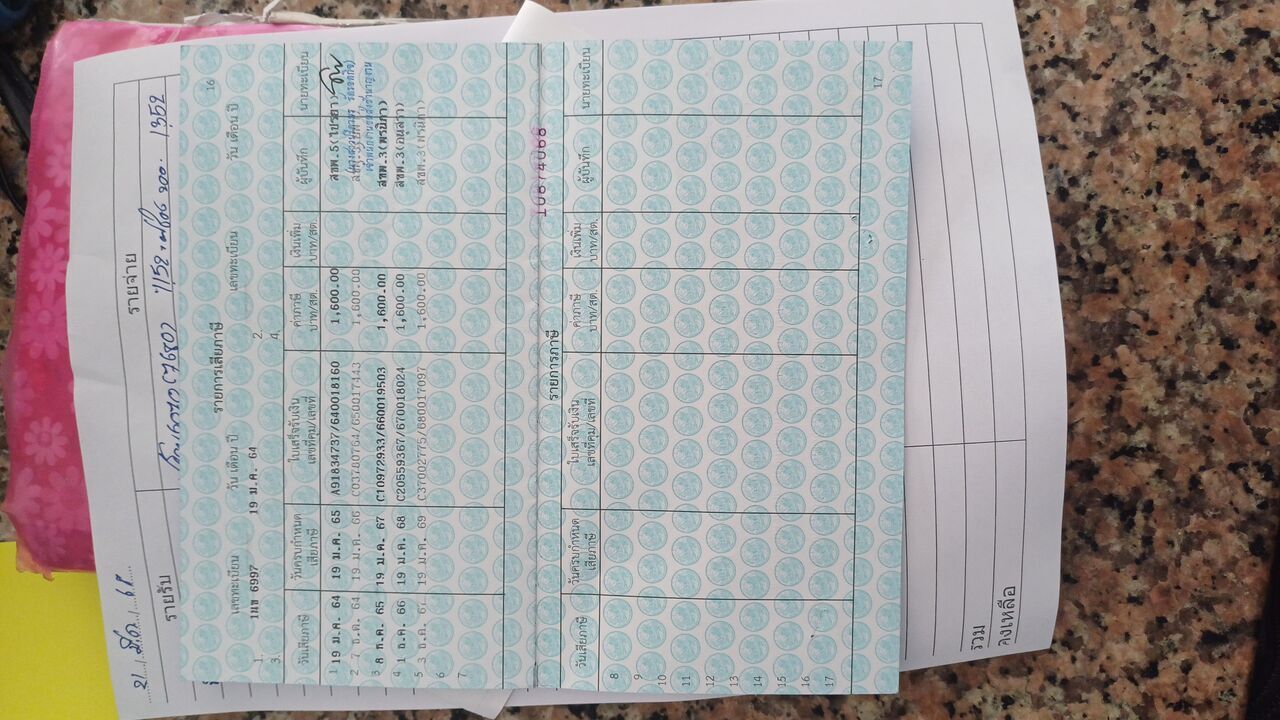 รายรับ
รายจ่าย
16
รายการเสียภาษี
เลขทะเบียน วัน เดือน ปี เลขทะเบียน วัน เดือน ปี
1. 1นข 6997 19 ม.ค. 64 2.
3. 4.
วันเสียภาษี วันครบกำหนด เสียภาษี ใบเสร็จรับเงิน เลขที่คุม/เลขที่ ค่าภาษี บาท/สต. เงินเพิ่ม บาท/สต. ผู้บันทึก นายทะเบียน
1 19 ม.ค. 64 19 ม.ค. 65 A91834737/640018160 1,600.00
2 7 ธ.ค. 64 19 ม.ค. 66 C03780764/650017443 1,600.00
3 8 ธ.ค. 65 19 ม.ค. 67 C10972933/660019503 1,600.00
4 1 ธ.ค. 66 19 ม.ค. 68 C20559367/670018024 1,600.00
5 3 ธ.ค. 67 19 ม.ค. 69 C37002775/680017097 1,600.00
6
7
10874066
รายการภาษี
วันเสียภาษี วันครบกำหนด เสียภาษี ใบเสร็จรับเงิน เลขที่คุม/เลขที่ ค่าภาษี บาท/สต. เงินเพิ่ม บาท/สต. ผู้บันทึก นายทะเบียน
8
9
10
11
12
13
14
15
16
17
17
รวม
คงเหลือ